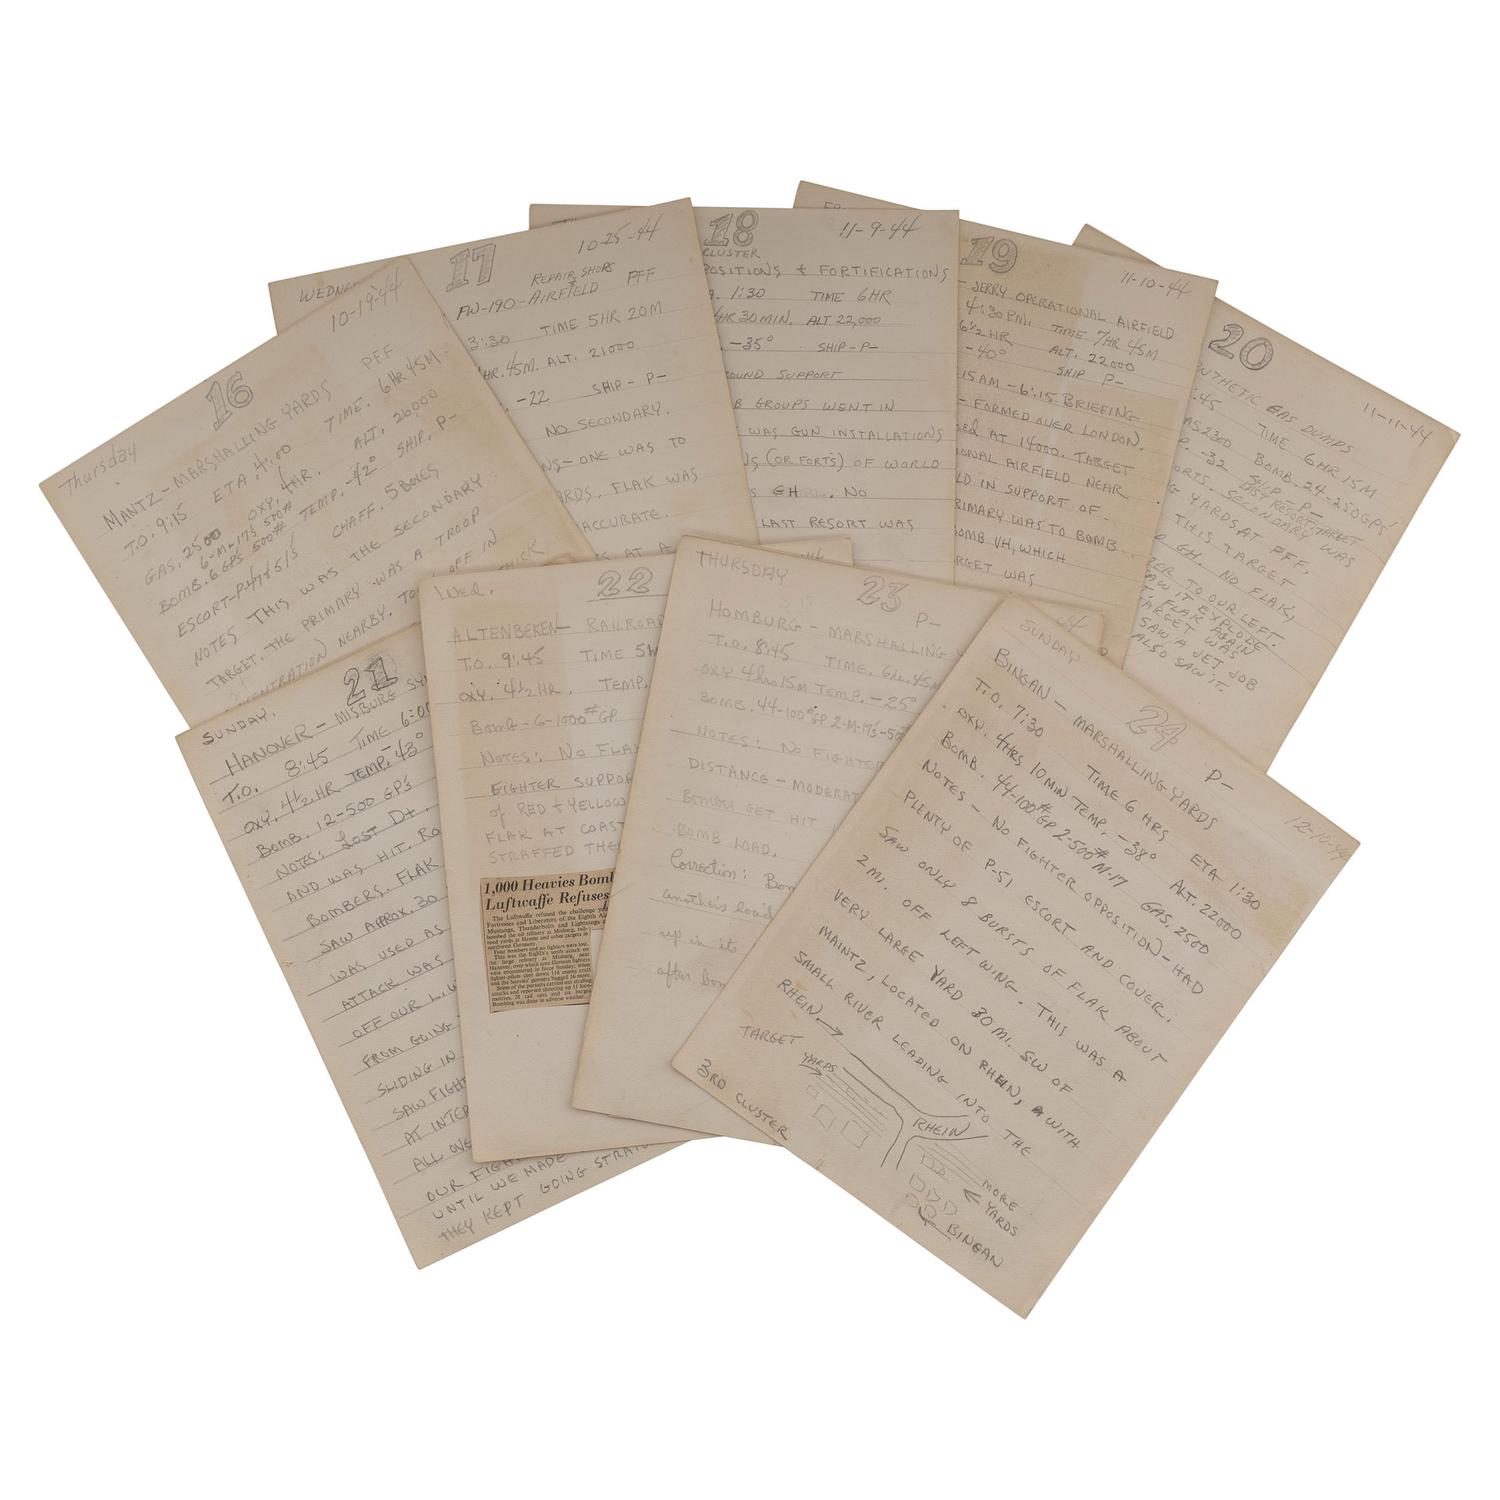 Thursday
16
10-19-44
MANTZ - MARSHALLING YARDS PFF
T.O. 9:15 ETA. 4:00 TIME. 6HR 45M.
GAS. 2500 OXY. 4HR. ALT. 26000
6-M-17S 500#
BOMB. 6 GPS 500# TEMP. -42° SHIP. P-
ESCORT-P47&51'S CHAFF. 5 BOXES
NOTES THIS WAS THE SECONDARY
TARGET. THE PRIMARY WAS A TROOP
CONCENTRATION NEARBY. OFF IN
WEDNE
17
10-25-44
REPAIR SHOPS
&
FW-190-AIRFIELD PFF
3:30 TIME 5HR 20M
HR. 45M. ALT. 21000
-22 SHIP - P-
NO SECONDARY.
NS - ONE WAS TO
ARDS. FLAK WAS
ACCURATE.
18
11-9-44
CLUSTER
POSITIONS + FORTIFICATIONS
1:30 TIME 6HR
4HR 30MIN. ALT 22,000
-35° SHIP-P-
OUND SUPPORT
B GROUPS WENT IN
WAS GUN INSTALLATIONS
(OR FORTS) OF WORLD
GH NO
LAST RESORT WAS
19
11-10-44
- JERRY OPERATIONAL AIRFIELD
4:30 PM. TIME 7HR 45M
6½ HR ALT. 22000
-40° SHIP P-
15 AM - 6:15 BRIEFING
- FORMED OVER LONDON.
ed AT 14000. TARGET
ONAL AIRFIELD NEAR
LD IN SUPPORT OF
RIMARY WAS TO BOMB
OMB VH, WHICH
RGET WAS
20
11-11-44
NTHETIC GAS DUMPS
:45 TIME 6HR 15M
AS 2300 BOMB. 24-250 GPS
P. -32 SHIP P-
LAST RESORT. TARGET
ORTS. SECONDARY WAS
G YARDS AT PFF.
THIS TARGET
GH. NO FLAK,
ER TO OUR LEFT.
AW IT EXPLODE
T. FLAK AGAIN
TARGET WAS
SAW A JET JOB
ALSO SAW IT.
21
SUNDAY.
HANOVER - MISBURG SYN
T.O. 8:45 TIME 6:00
OXY. 4½ HR TEMP. -43°
BOMB. 12-500 GP'S
NOTES: LOST D+.
AND WAS HIT. RO
BOMBERS. FLAK
SAW APPROX. 30
WAS USED AS
ATTACK WAS
OFF OUR L.W
FROM GOING
SLIDING IN
SAW FIGHT
AT INTER
ALL OVE
OUR FIGH
UNTIL WE MADE
THEY KEPT GOING STRAI
Wed.
22
ALTENBEKEN - RAILROAD
T.O. 9:45 TIME 5H
OXY. 4½ HR. TEMP.
Bomb - 6-1000# GP
NOTES: NO FLAK
FIGHTER SUPPOR
of RED + YELLOW
FLAK AT COAST
STRAFFED THE
1,000 Heavies Bomb
Luftwaffe Refuses
The Luftwaffe refused the challenge
Fortresses and Liberators of the Eighth Ai
Mustangs, Thunderbolts and Lightnings
bombed the oil refinery at Misburg, rail-
road yards at Hamm and other targets in
northwest Germany.
Four bombers and no fighters were lost.
This was the Eighth's tenth attack on
the large refinery at Misburg, near
Hanover, over which area German fighters
were encountered in force Sunday; when
fighter-pilots shot down 114 enemy craft
and the heavies' gunners bagged 16 more.
Some of the pursuits carried out strafing
attacks and reported shooting up 11 loco-
motives, 28 rail cars and six barges
Bombing was done in adverse weather.
THURSDAY
23
P-
HOMBURG - MARSHALLING Y
T.O. 8:45 TIME. 6hr. 45M
OXY 4hrs 15M TEMP. -25°
BOMB. 44-100# GP 2-M-17's-500
NOTES: NO FIGHTER
DISTANCE - MODERAT
Bomber GET HIT
BOMB LOAD.
Correction: Bom
another's load
up in its
after bom
SUNDAY
24
P-
12-10-44
BINGAN - MARSHALLING YARDS
T.O. 7:30 TIME 6 HRS ETA 1:30
OXY. 4HRS 10MIN TEMP. -38° ALT. 22000
BOMB. 44-100# GP 2-500# M-17 GAS. 2500
NOTES - NO FIGHTER OPPOSITION - HAD
PLENTY OF P-51 ESCORT AND COVER.
SAW ONLY 8 BURSTS OF FLAK ABOUT
2 MI. OFF LEFT WING. THIS WAS A
VERY LARGE YARD 30 MI. SW OF
MAINTZ, LOCATED ON RHEIN, WITH
SMALL RIVER LEADING INTO THE
RHEIN.
TARGET
YARDS
RHEIN
MORE
YARDS
BINGAN
3RD CLUSTER